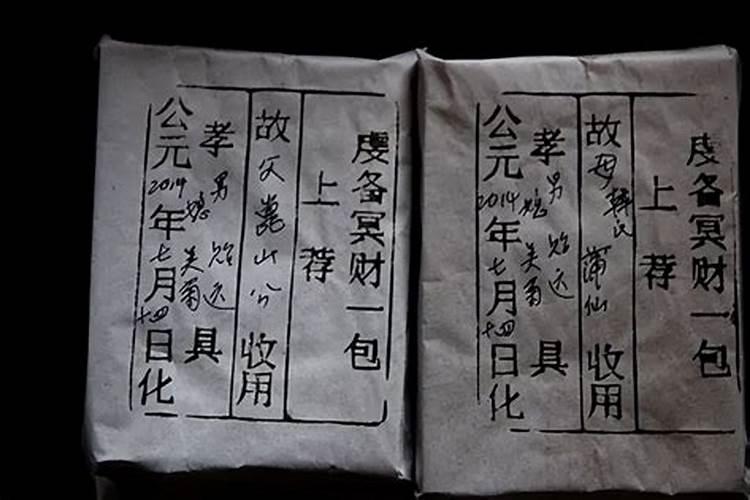 虔备冥财一包
上荐
故父 山公 收用
孝男 贻远 媳 美菊 具
公元2014年七月十四日化
虔备冥财一包
上荐
故母韩氏 蒲仙 收用
孝男 贻远 媳 美菊 具
公元2014年七月十四日化